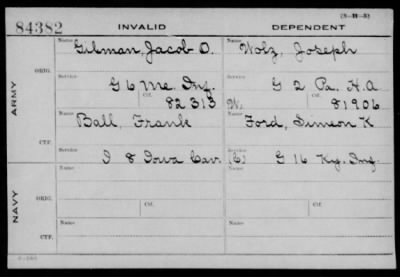 (3-H-3)
84382 INVALID DEPENDENT
Name Gilman, Jacob O. Name Wolz, Joseph
ORIG. Service G 6 Me. Inf. Service G 2 Pa. H.A
Ctf. 82313 W. Ctf. 81906
ARMY
Name Ball, Frank Name Ford, Simeon K
CTF. Service I 8 Iowa Cav. (C) Service G 16 Ky. Inf.
Name Name
ORIG.
Service Ctf. Service Ctf.
NAVY
Name Name
CTF.
Service Service